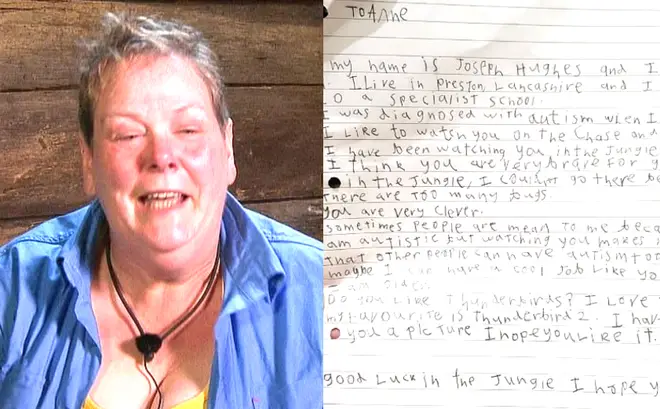 TO Anne
my name is Joseph Hughes and I
. I live in Preston Lancashire and I
to a specialist school.
I was diagnosed with autism when I
I like to watsh you on the chase and
I have been watching you in the jungle
I think you are very brare for g
in the jungle, I couldnt go there be
there are too many bugs.
you are very clover.
sometimes people are mean to me beca
am autistic but watching you makes
that other people can have autism too
maybe I can have a cool job like yo
Do you like Thunderbirds? I love
my favourite is Thunderbird 2. I hav
you a picture I hope you like it.
good luck in the jungle I hope y